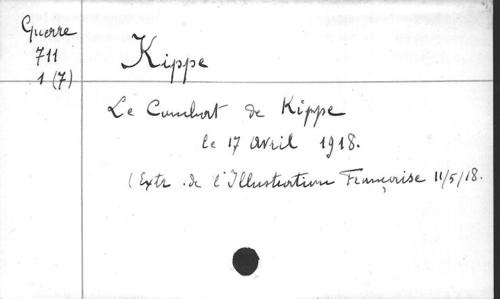 Guerre
711
1 (7)
Kippe
Le Combat de Kippe
le 17 Avril 1918.
(Extr. de l'Illustration Française 11/5/18.